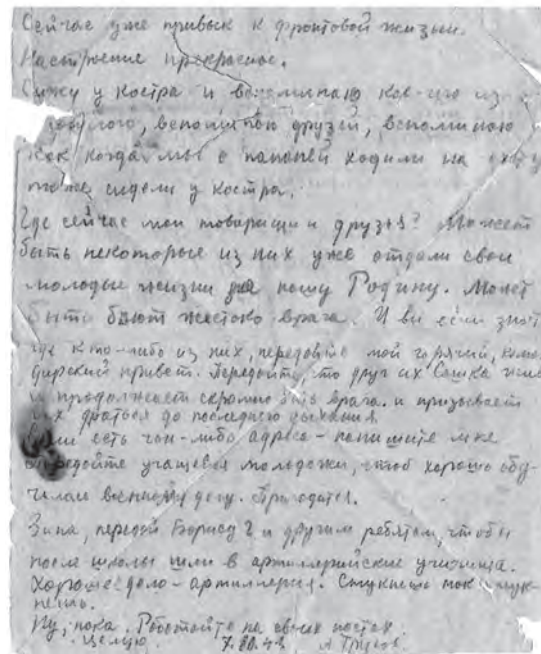 Сейчас уже привык к фронтовой жизни.
Настроение прекрасное.
Сижу у костра и вспоминаю кое-что из
былого, вспоминаю друзей, вспоминаю
как когда мы с папаней ходили на охоту
тоже сидели у костра.
Где сейчас мои товарищи и друзья? Может
быть некоторые из них уже отдали свои
молодые жизни за нашу Родину. Может
быть бьют жестоко врага. И вы если
где кто-либо из них, передайте мой горячий,
дирский привет. Передайте что друг их жив
и продолжает скромно бить врага. и призывает
их драться до последнего дыхания.
Если есть чьи-либо адреса - напишите мне
передайте учащейся молодежи, чтоб хорошо обу-
чалась военному делу. Пригодится.
Зина, передай Борису и другим ребятам, чтобы
после школы шли в артиллерийские училища.
Хорошее дело - артиллерия. Стукнешь так
нешь.
Ну, пока. Работайте на своих постах.
Целую.